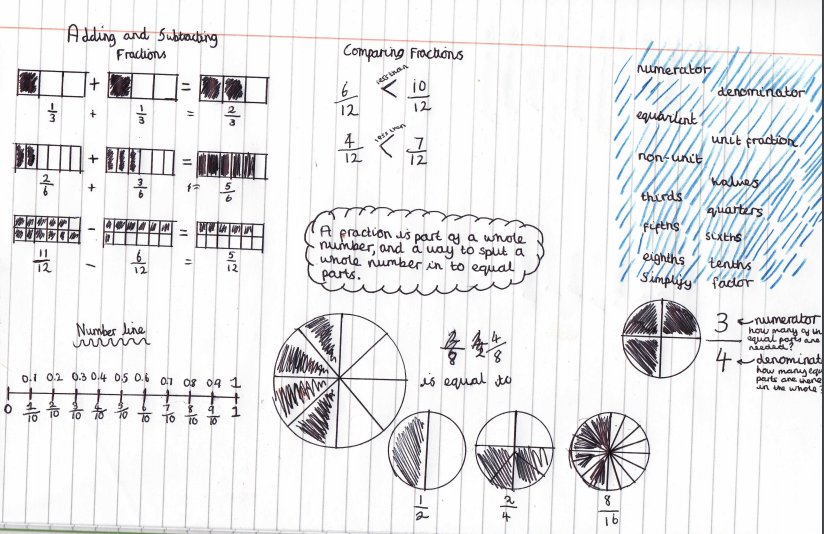 Adding and Subtracting
Fractions
+ =
1/3 + 1/3 = 2/3
+ =
2/6 + 3/6 = 5/6
- =
11/12 - 6/12 = 5/12
Number line
0.1 0.2 0.3 0.4 0.5 0.6 0.7 0.8 0.9 1
0 1/10 2/10 3/10 4/10 5/10 6/10 7/10 8/10 9/10 1
Comparing Fractions
less than
6/12 < 10/12
less than
4/12 < 7/12
A fraction is part of a whole
number, and a way to split a
whole number in to equal
parts.
4/8
is equal to
1/2
2/4
8/16
numerator
denominator
unit fraction
non-unit
thirds
quarters
fifths
sixths
eighths
tenths
Simplify factor
3 numerator
how many of th
equal parts are
needed?
4 denominat
how many equ
parts are there
in the whole?